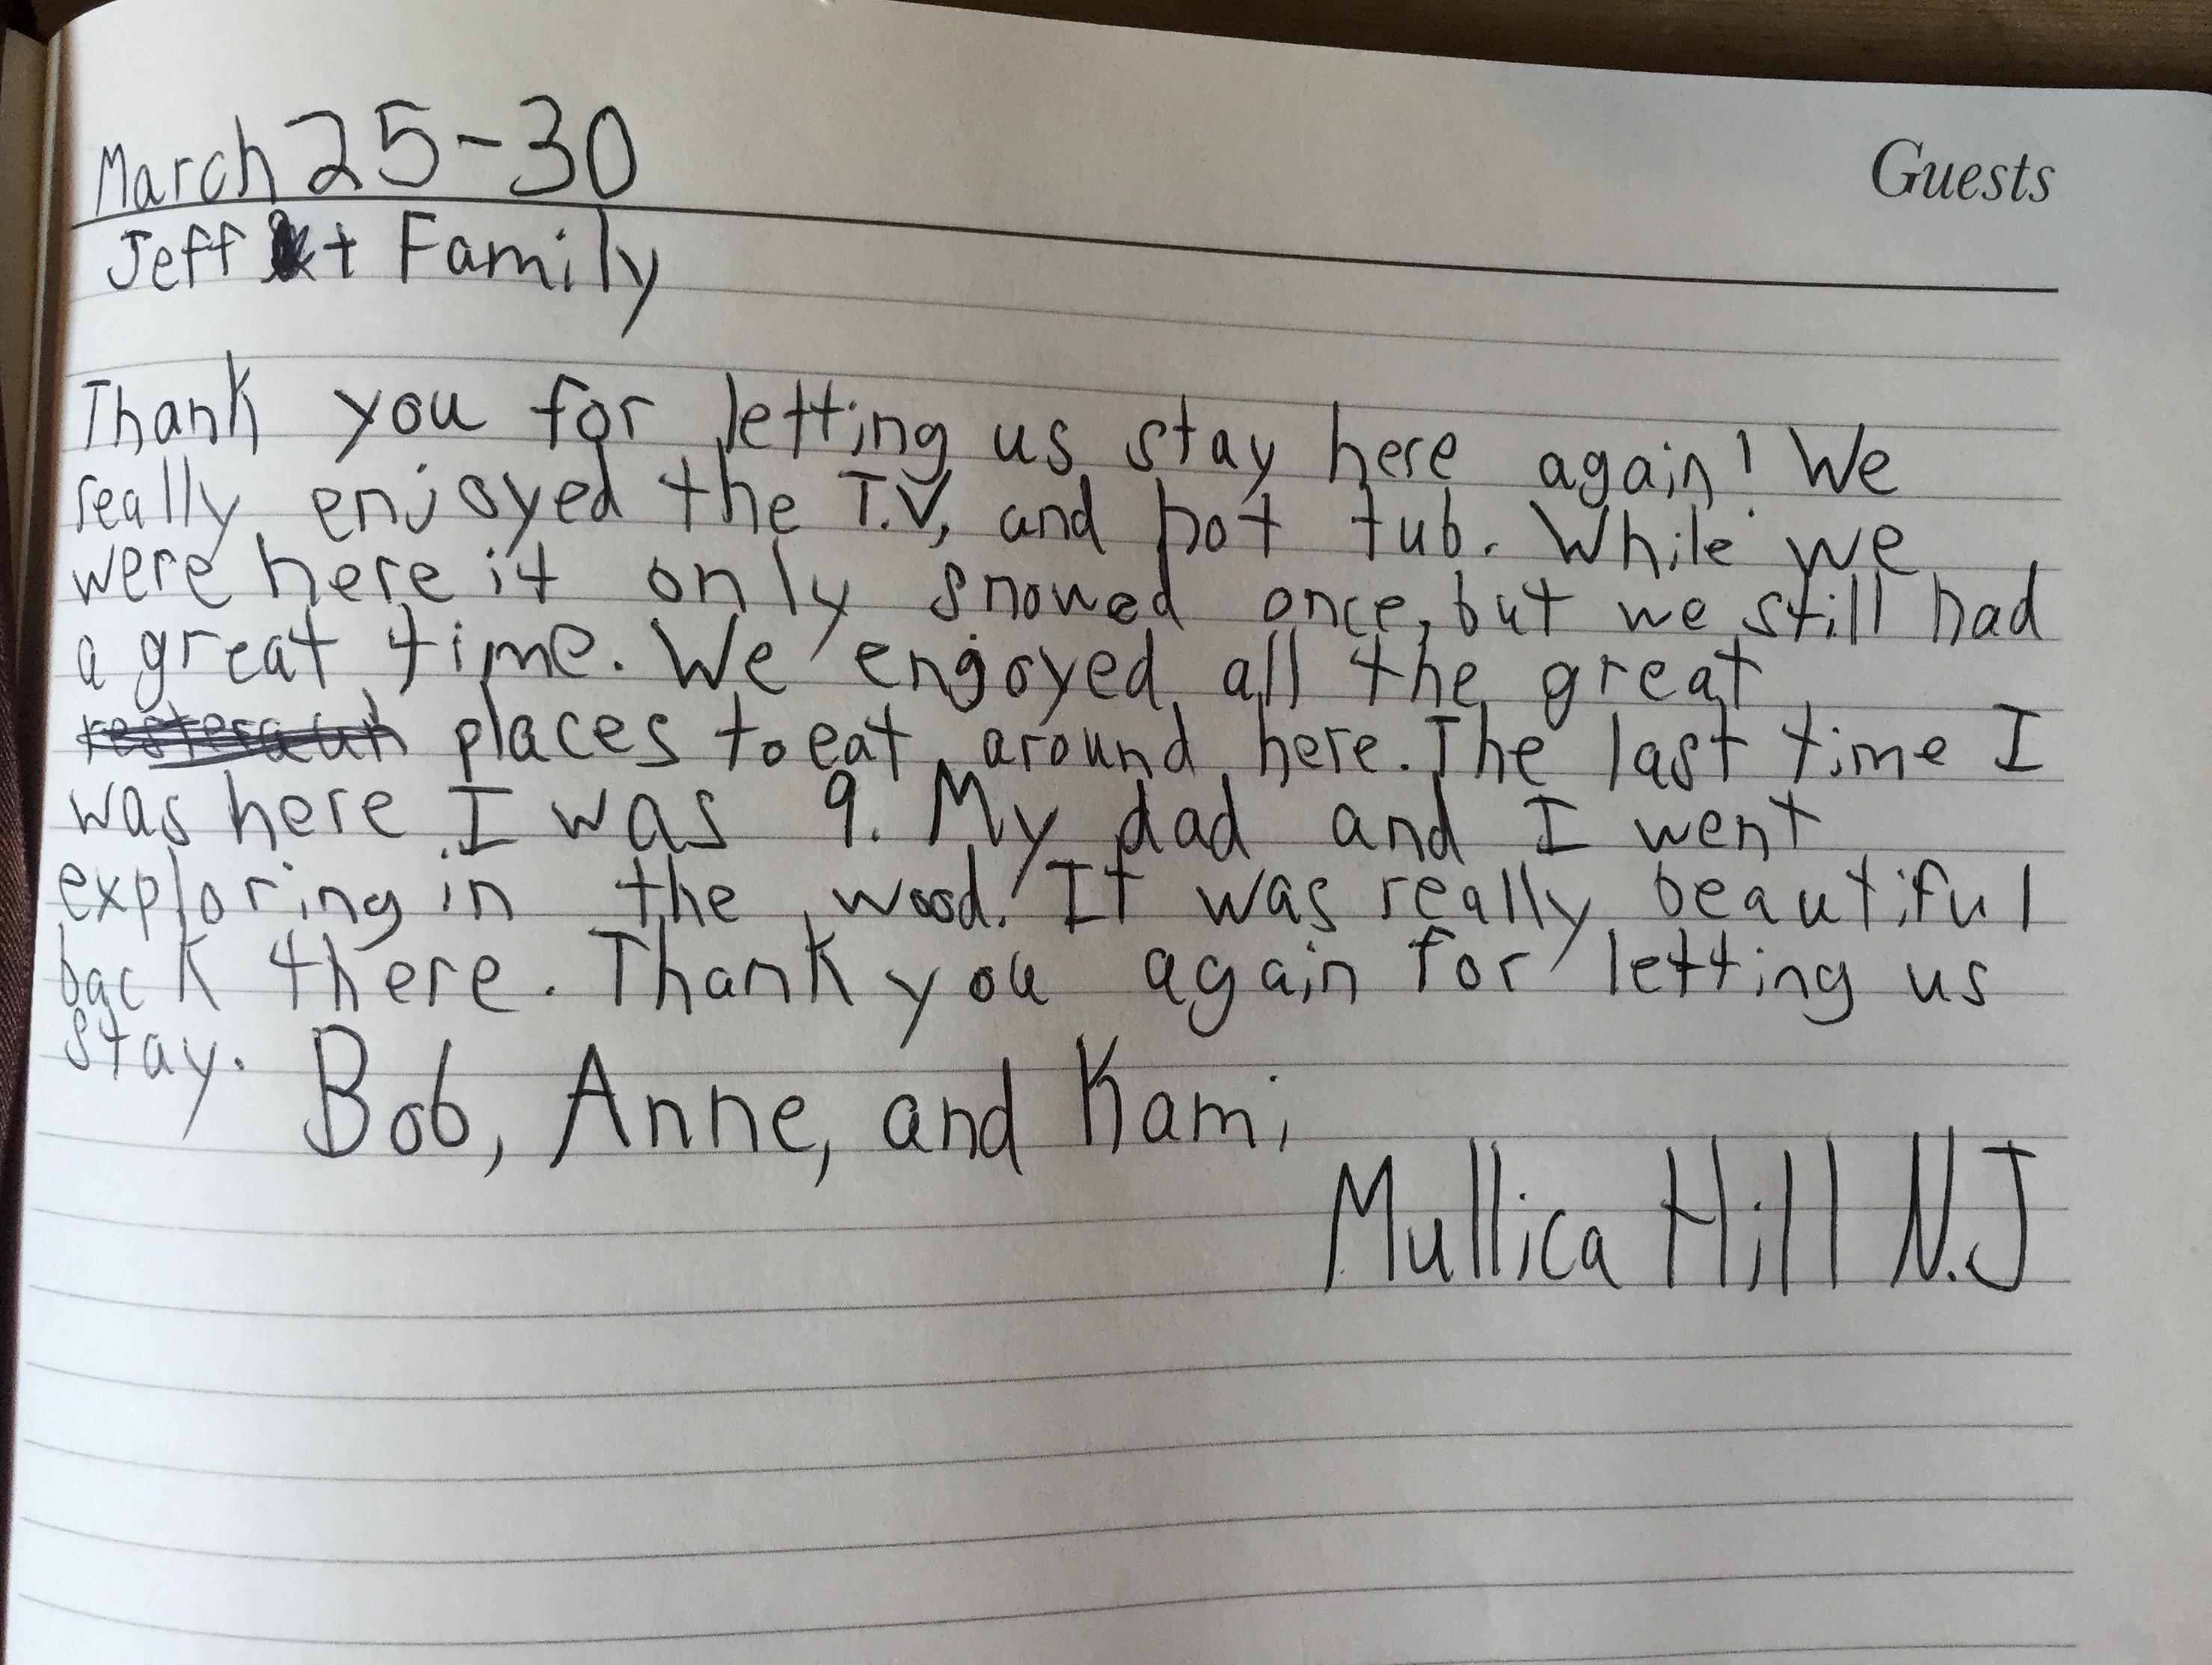 March 25-30
Guests
Jeff + Family
Thank you for letting us stay here again! We
really enjoyed the T.V, and hot tub. While we
were here it only snowed once, but we still had
a great time. We engoyed all the great
resteraun places to eat around here. The last time I
was here I was 9. My dad and I went
exploring in the wood. It was really beautiful
back there. Thank you again for letting us
stay.
Bob, Anne, and Kami
Mullica Hill N.J